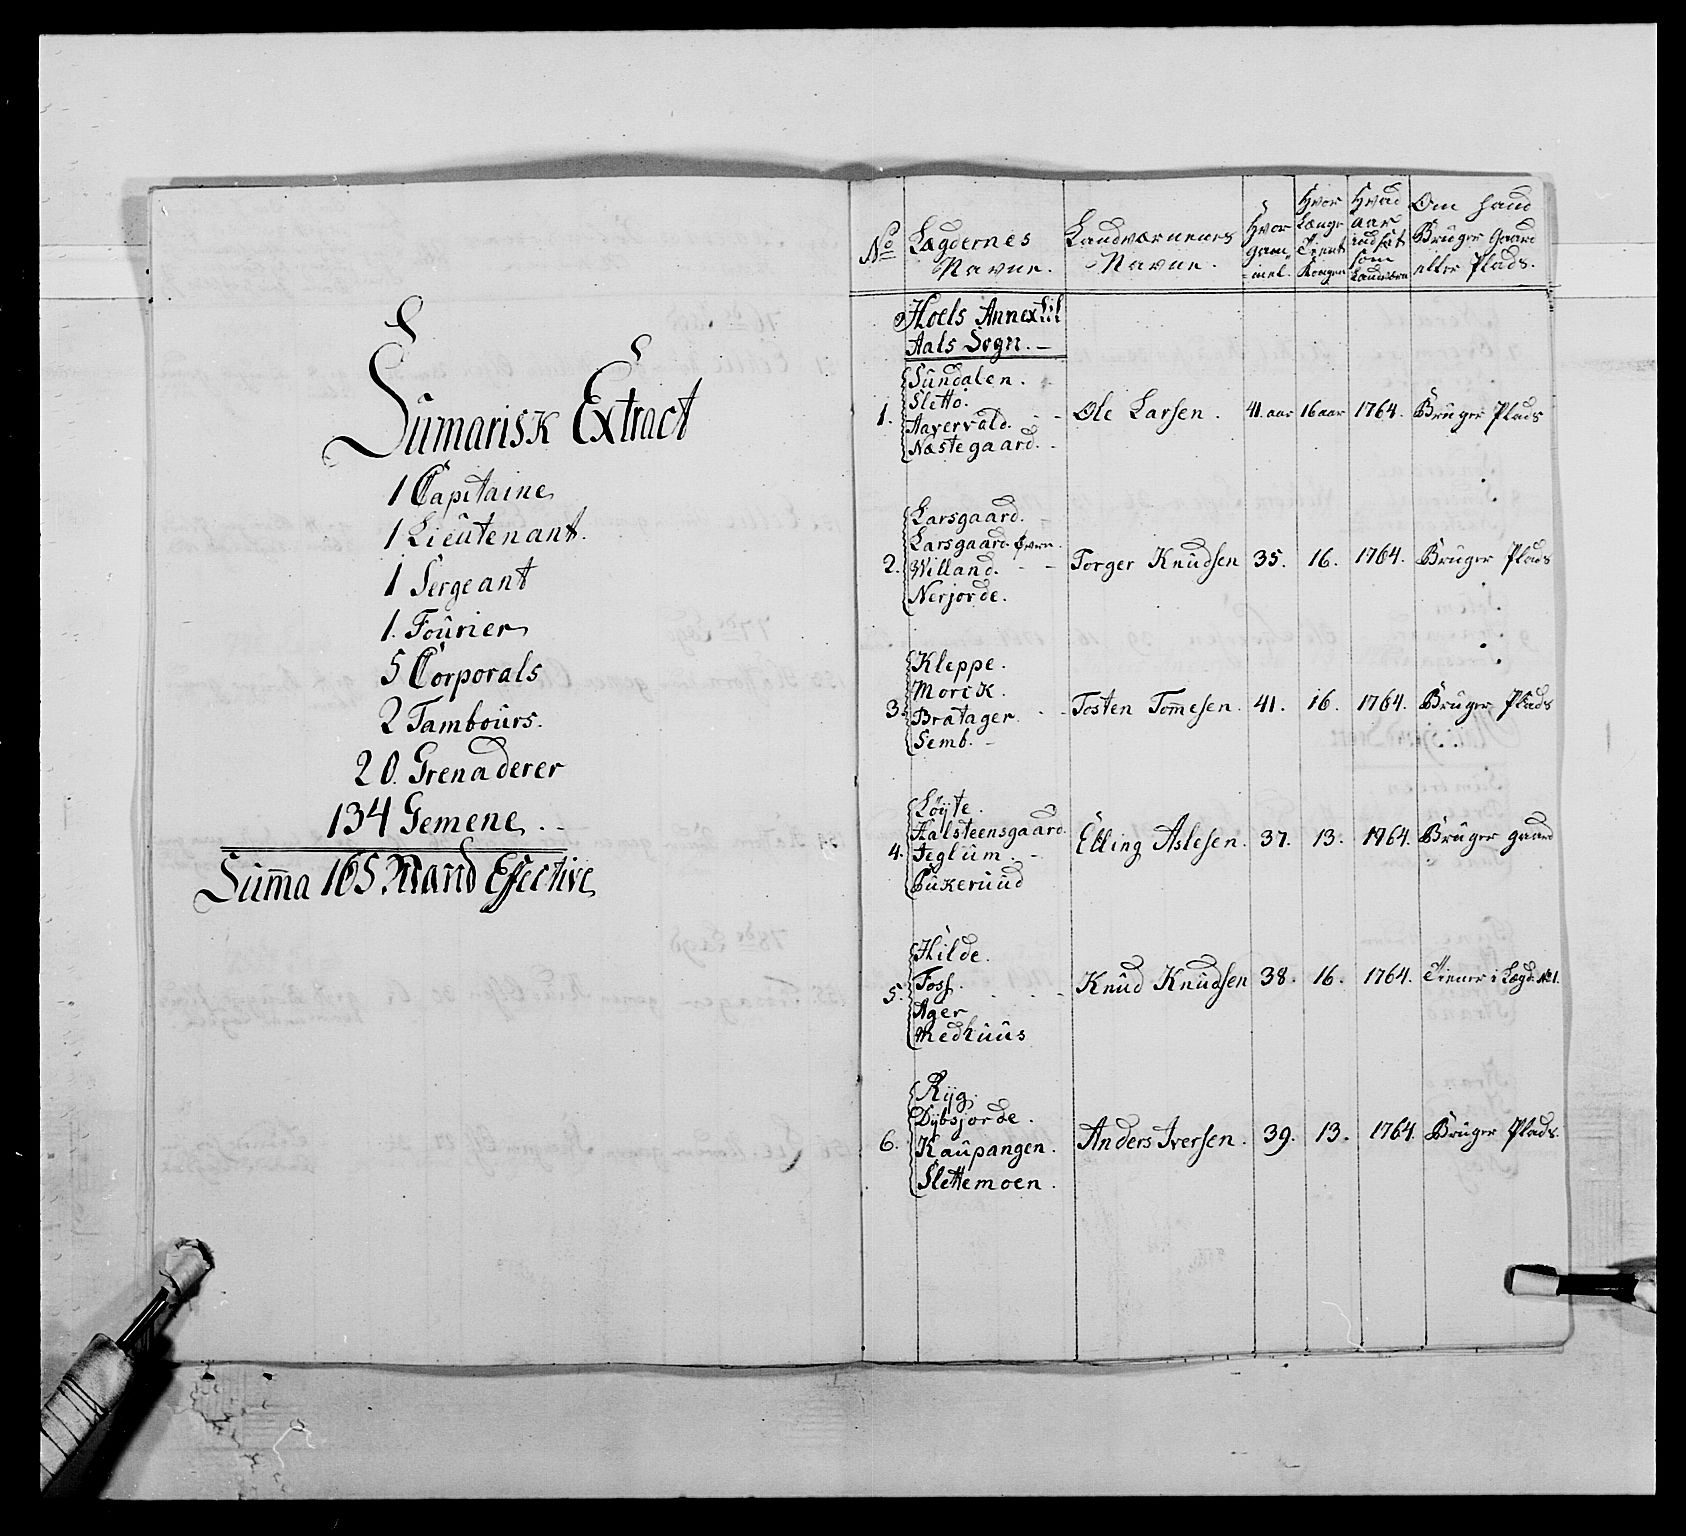 Sum̅arisk Extract
1 Capitaine
1 Lieutenant.
1 Sergeant
1. Fourier
5 Corporals
2 Tambours.
20. Grenaderer
134 Gemene. . -
Sum̅a 165 Mand Effective
No Lægdernes Navne. Landværnenes Navne. Hvor gammel. Hvor Længe Tient Kongen Hvad aar indsat som Landværn Om hand Bruger Gaard eller Plads.
Hoels Annex til
Aals Sogn. -
Sundalen.
Sletto.
1. Aavervald. - - Ole Larsen. 41. aar 16 aar 1764. Bruger Plads
Næstegaard. -
Larsgaard.
Larsgaard. øvre.
2. Willand. - - Torger Knudsen 35. 16. 1764. Bruger Plads
Nerjorde.
Kleppe.
Morck.
3. Bratager. - - Tosten Tom̅esen. 41. 16. 1764. Bruger Plads
Semb. -
Løyte.
Halsteensgaard.
4. Teglum. - Elling Aslesen. 37. 13. 1764. Bruger gaard
Pukeruud
Hilde.
Foss.
5. Ager Knud Knudsen 38. 16. 1764. Tiener i Lægd. No 1.
Medhuus
Ryg.
Dybsjorde.
6. Kaupangen. Anders Iversen. 39. 13. 1764. Bruger Plads.
Slettemoen.